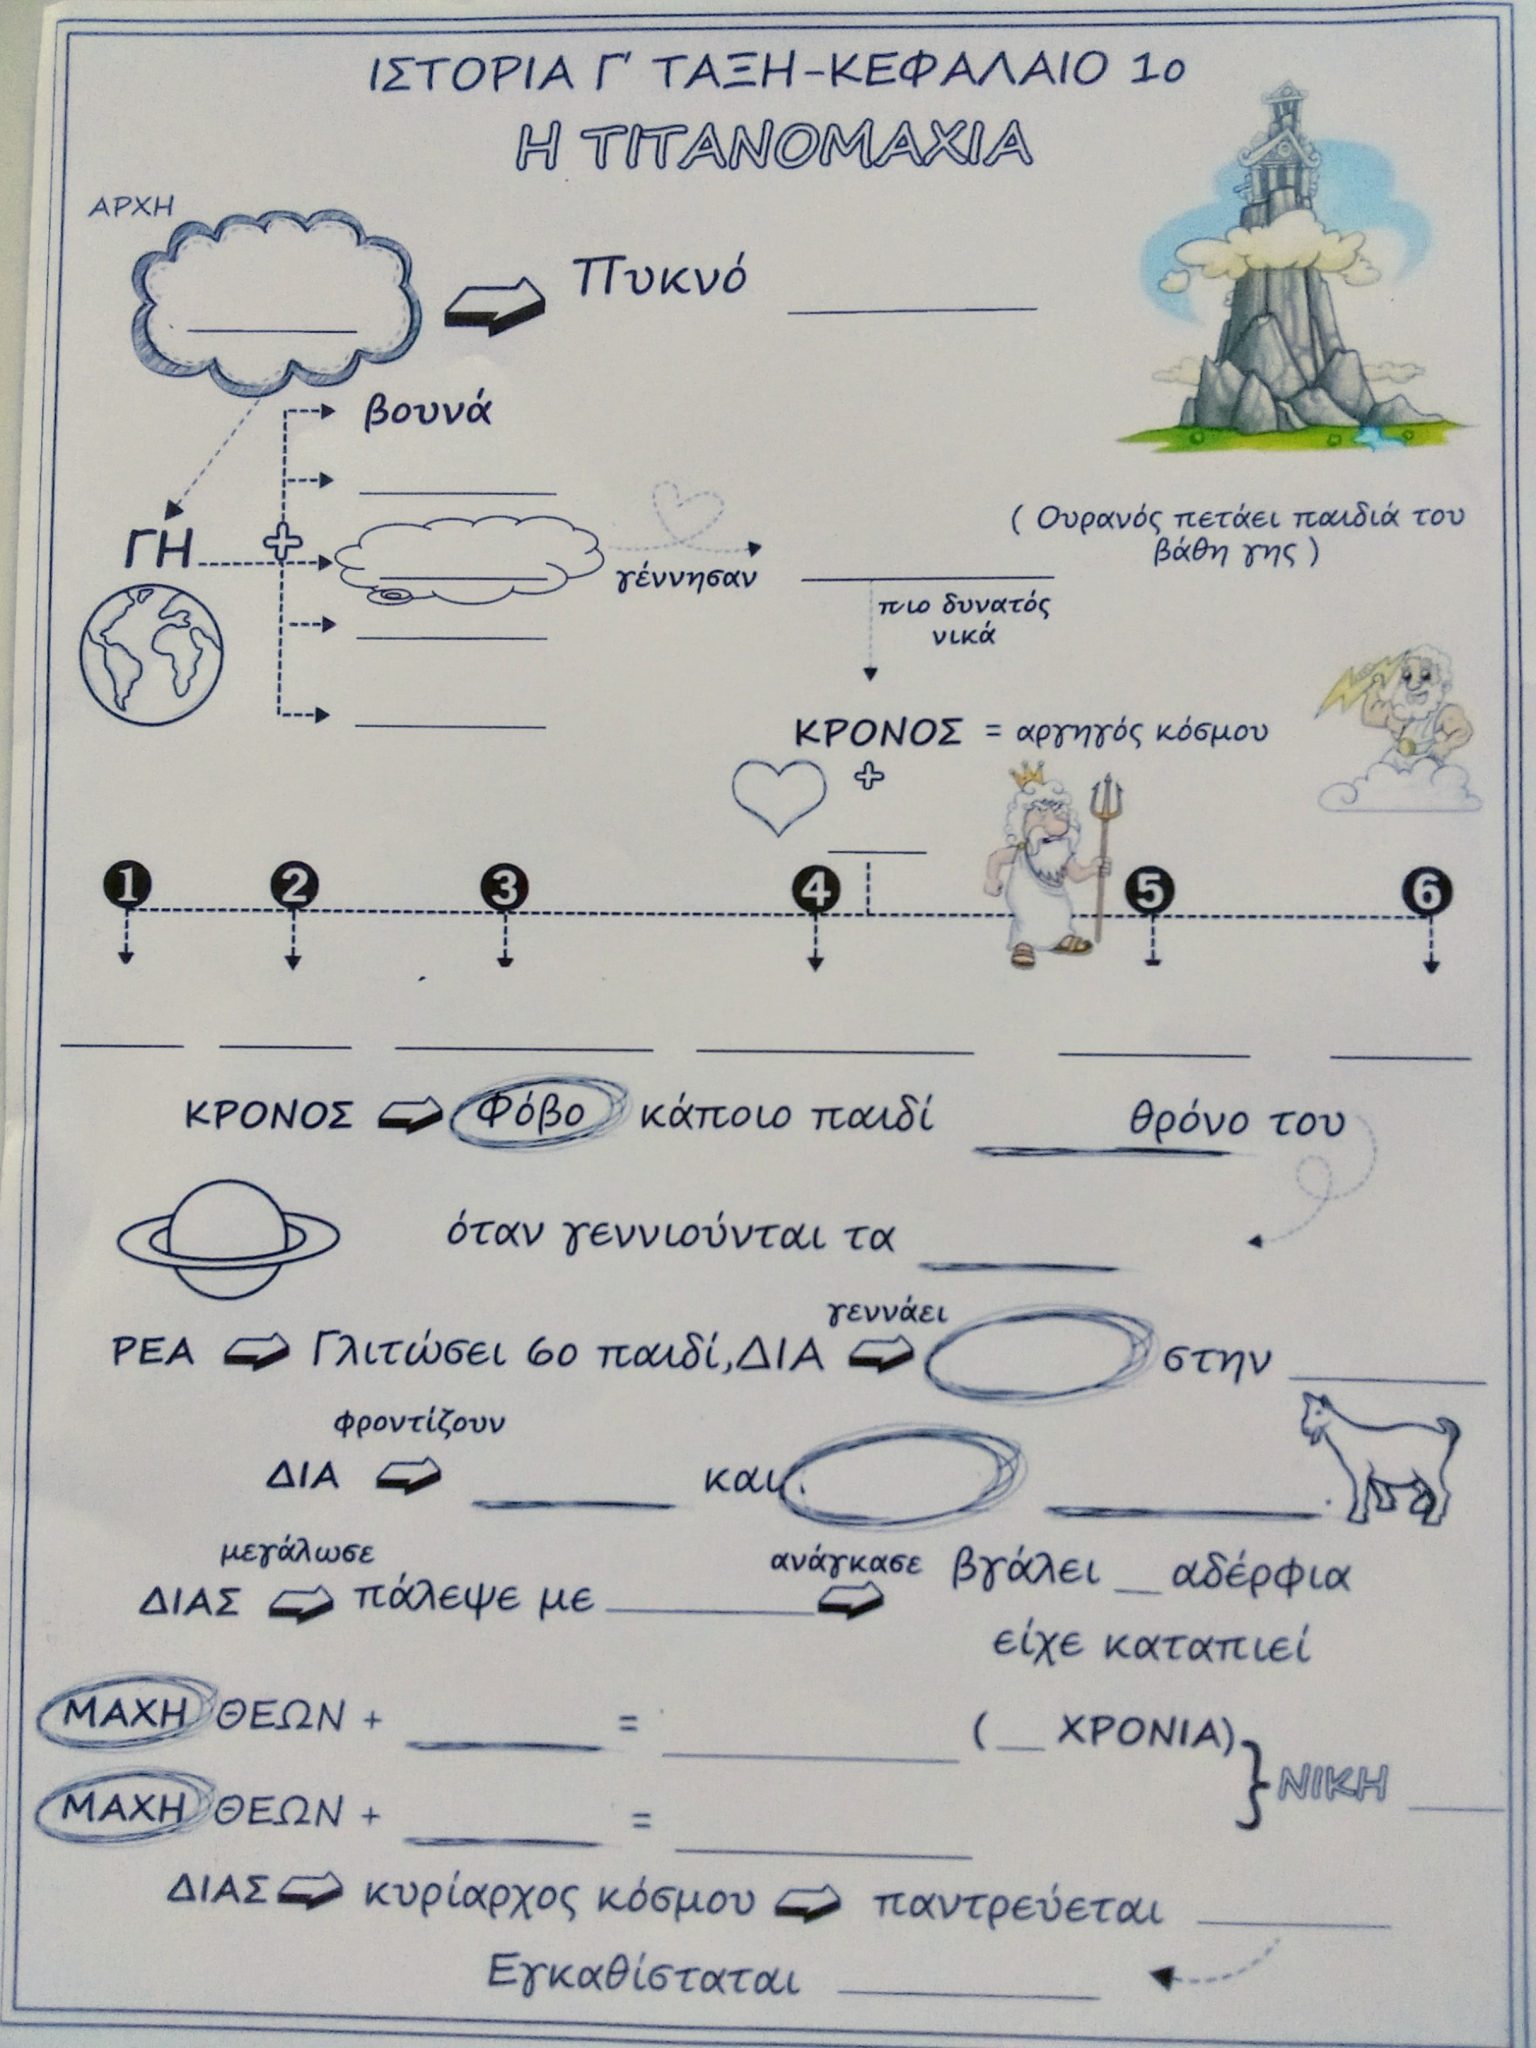 ΙΣΤΟΡΙΑ Γ' ΤΑΞΗ-ΚΕΦΑΛΑΙΟ 1ο
Η ΤΙΤΑΝΟΜΑΧΙΑ
ΑΡΧΗ
Πυκνό
βουνά
ΓΗ
γέννησαν
( Ουρανός πετάει παιδιά του
βάθη γης )
πιο δυνατός
νικά
ΚΡΟΝΟΣ = αργηγός κόσμου
1 2 3 4 5 6
ΚΡΟΝΟΣ Φόβο κάποιο παιδί θρόνο του
όταν γεννιούνται τα
γεννάει
ΡΕΑ Γλιτώσει 6ο παιδί,ΔΙΑ στην
φροντίζουν
ΔΙΑ και
μεγάλωσε
ανάγκασε
ΔΙΑΣ πάλεψε με βγάλει __ αδέρφια
είχε καταπιεί
ΜΑΧΗ ΘΕΩΝ + = ( __ ΧΡΟΝΙΑ)
ΝΙΚΗ
ΜΑΧΗ ΘΕΩΝ + =
ΔΙΑΣ κυρίαρχος κόσμου παντρεύεται
Εγκαθίσταται